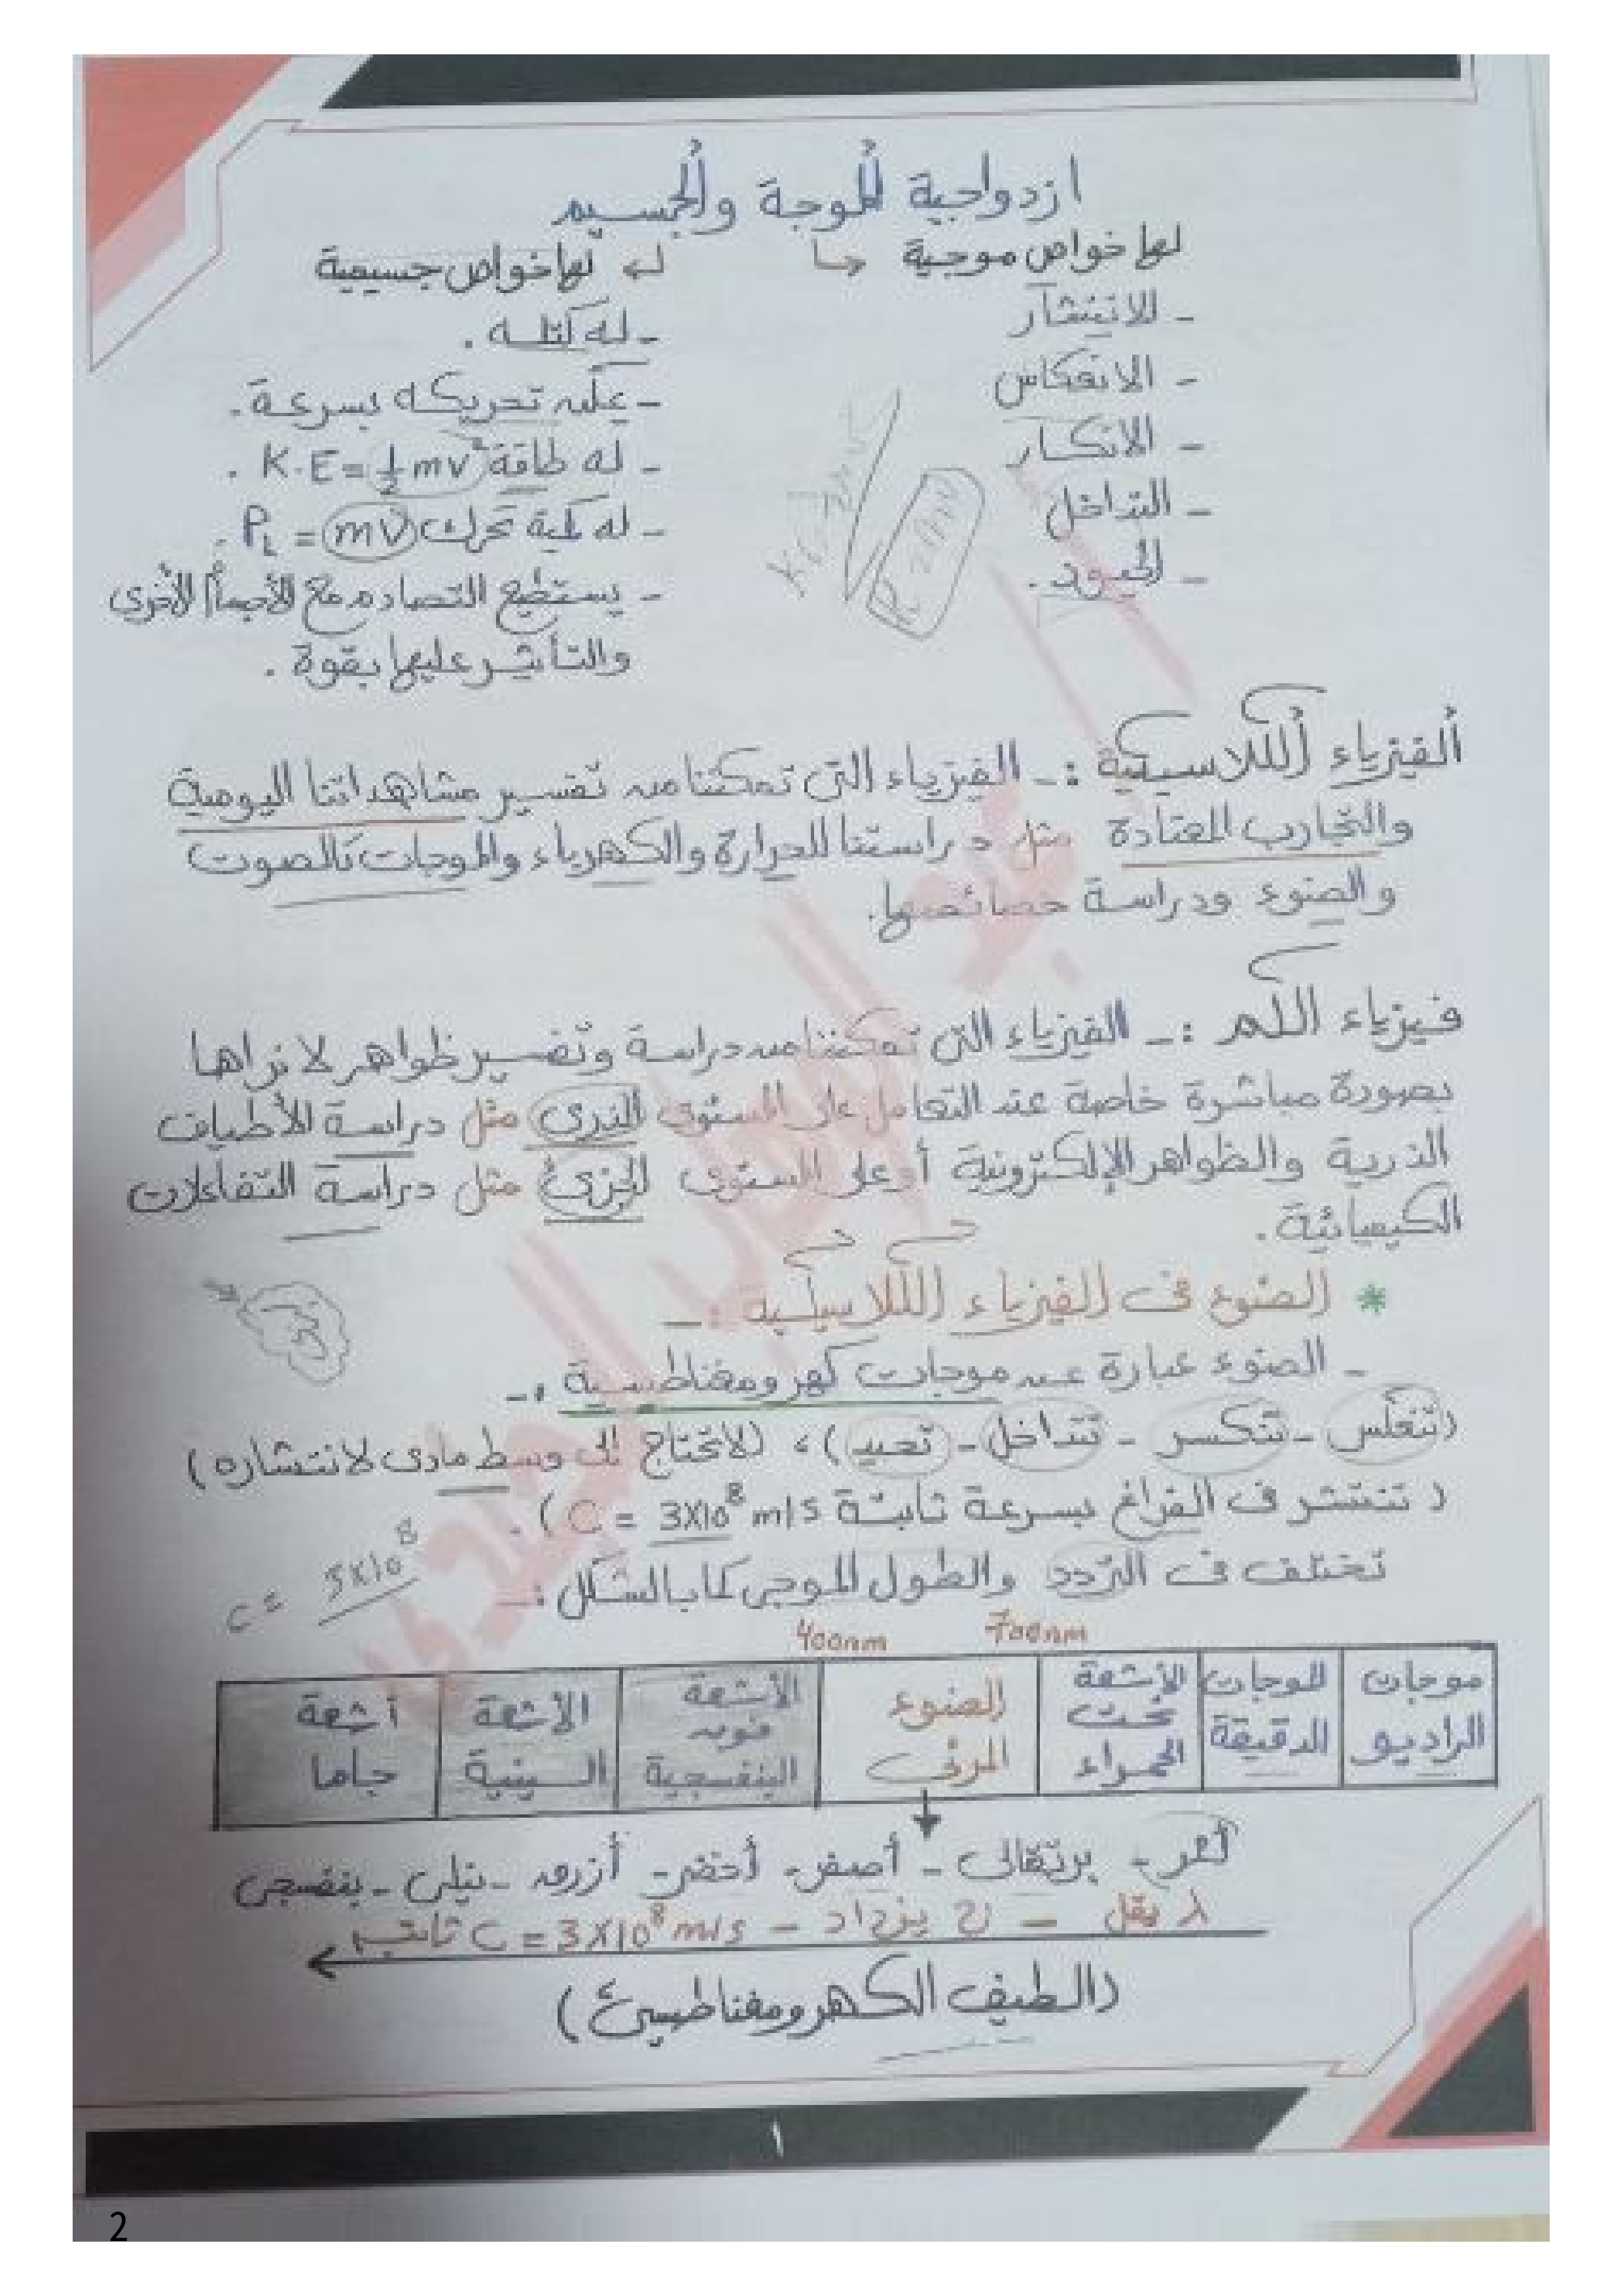 ازدواجية الموجة والجسيم
لها خواص موجية
لها خواص جسيمية
- الانتشار
- الانعكاس
- الانكسار
- التداخل
- الحيود.
- له كتله.
- يمكن تحريكه بسرعة.
- له طاقة K.E = ½mv².
- له كمية تحرك P_L = mv.
- يستطيع التصادم مع الأجسام الأخرى
والتأثير عليها بقوة.
الفيزياء الكلاسيكية :- الفيزياء التى تمكننا من تفسير مشاهداتنا اليومية
والتجارب المعتادة مثل دراستنا للحرارة والكهرباء والموجات كالصوت
والضوء ودراسة خصائصها.
فيزياء الكم :- الفيزياء التى تمكننا من دراسة وتفسير ظواهر لا نراها
بصورة مباشرة خاصة عند التعامل على المستوى الذرى مثل دراسة الأطياف
الذرية والظواهر الإلكترونية أو على المستوى الجزئ مثل دراسة التفاعلات
الكيميائية.
* الضوء فى الفيزياء الكلاسيكية :-
- الضوء عبارة عن موجات كهرومغناطيسية :-
(تنعكس - تنكسر - تتداخل - تحيد)، (لا تحتاج إلى وسط مادى لانتشاره)
(تنتشر فى الفراغ بسرعة ثابتة C = 3X10⁸ m/s).
تختلف فى التردد والطول الموجى كما بالشكل :-
C = 3X10⁸
400nm 700nm
موجات الراديو
الموجات الدقيقة
الأشعة تحت الحمراء
الضوء المرئى
الأشعة فوق البنفسجية
الأشعة السينية
أشعة جاما
أحمر - برتقالى - أصفر - أخضر - أزرق - نيلى - بنفسجى
λ يقل - υ يزداد - C = 3X10⁸ m/s ثابت
(الطيف الكهرومغناطيسى)
١
2